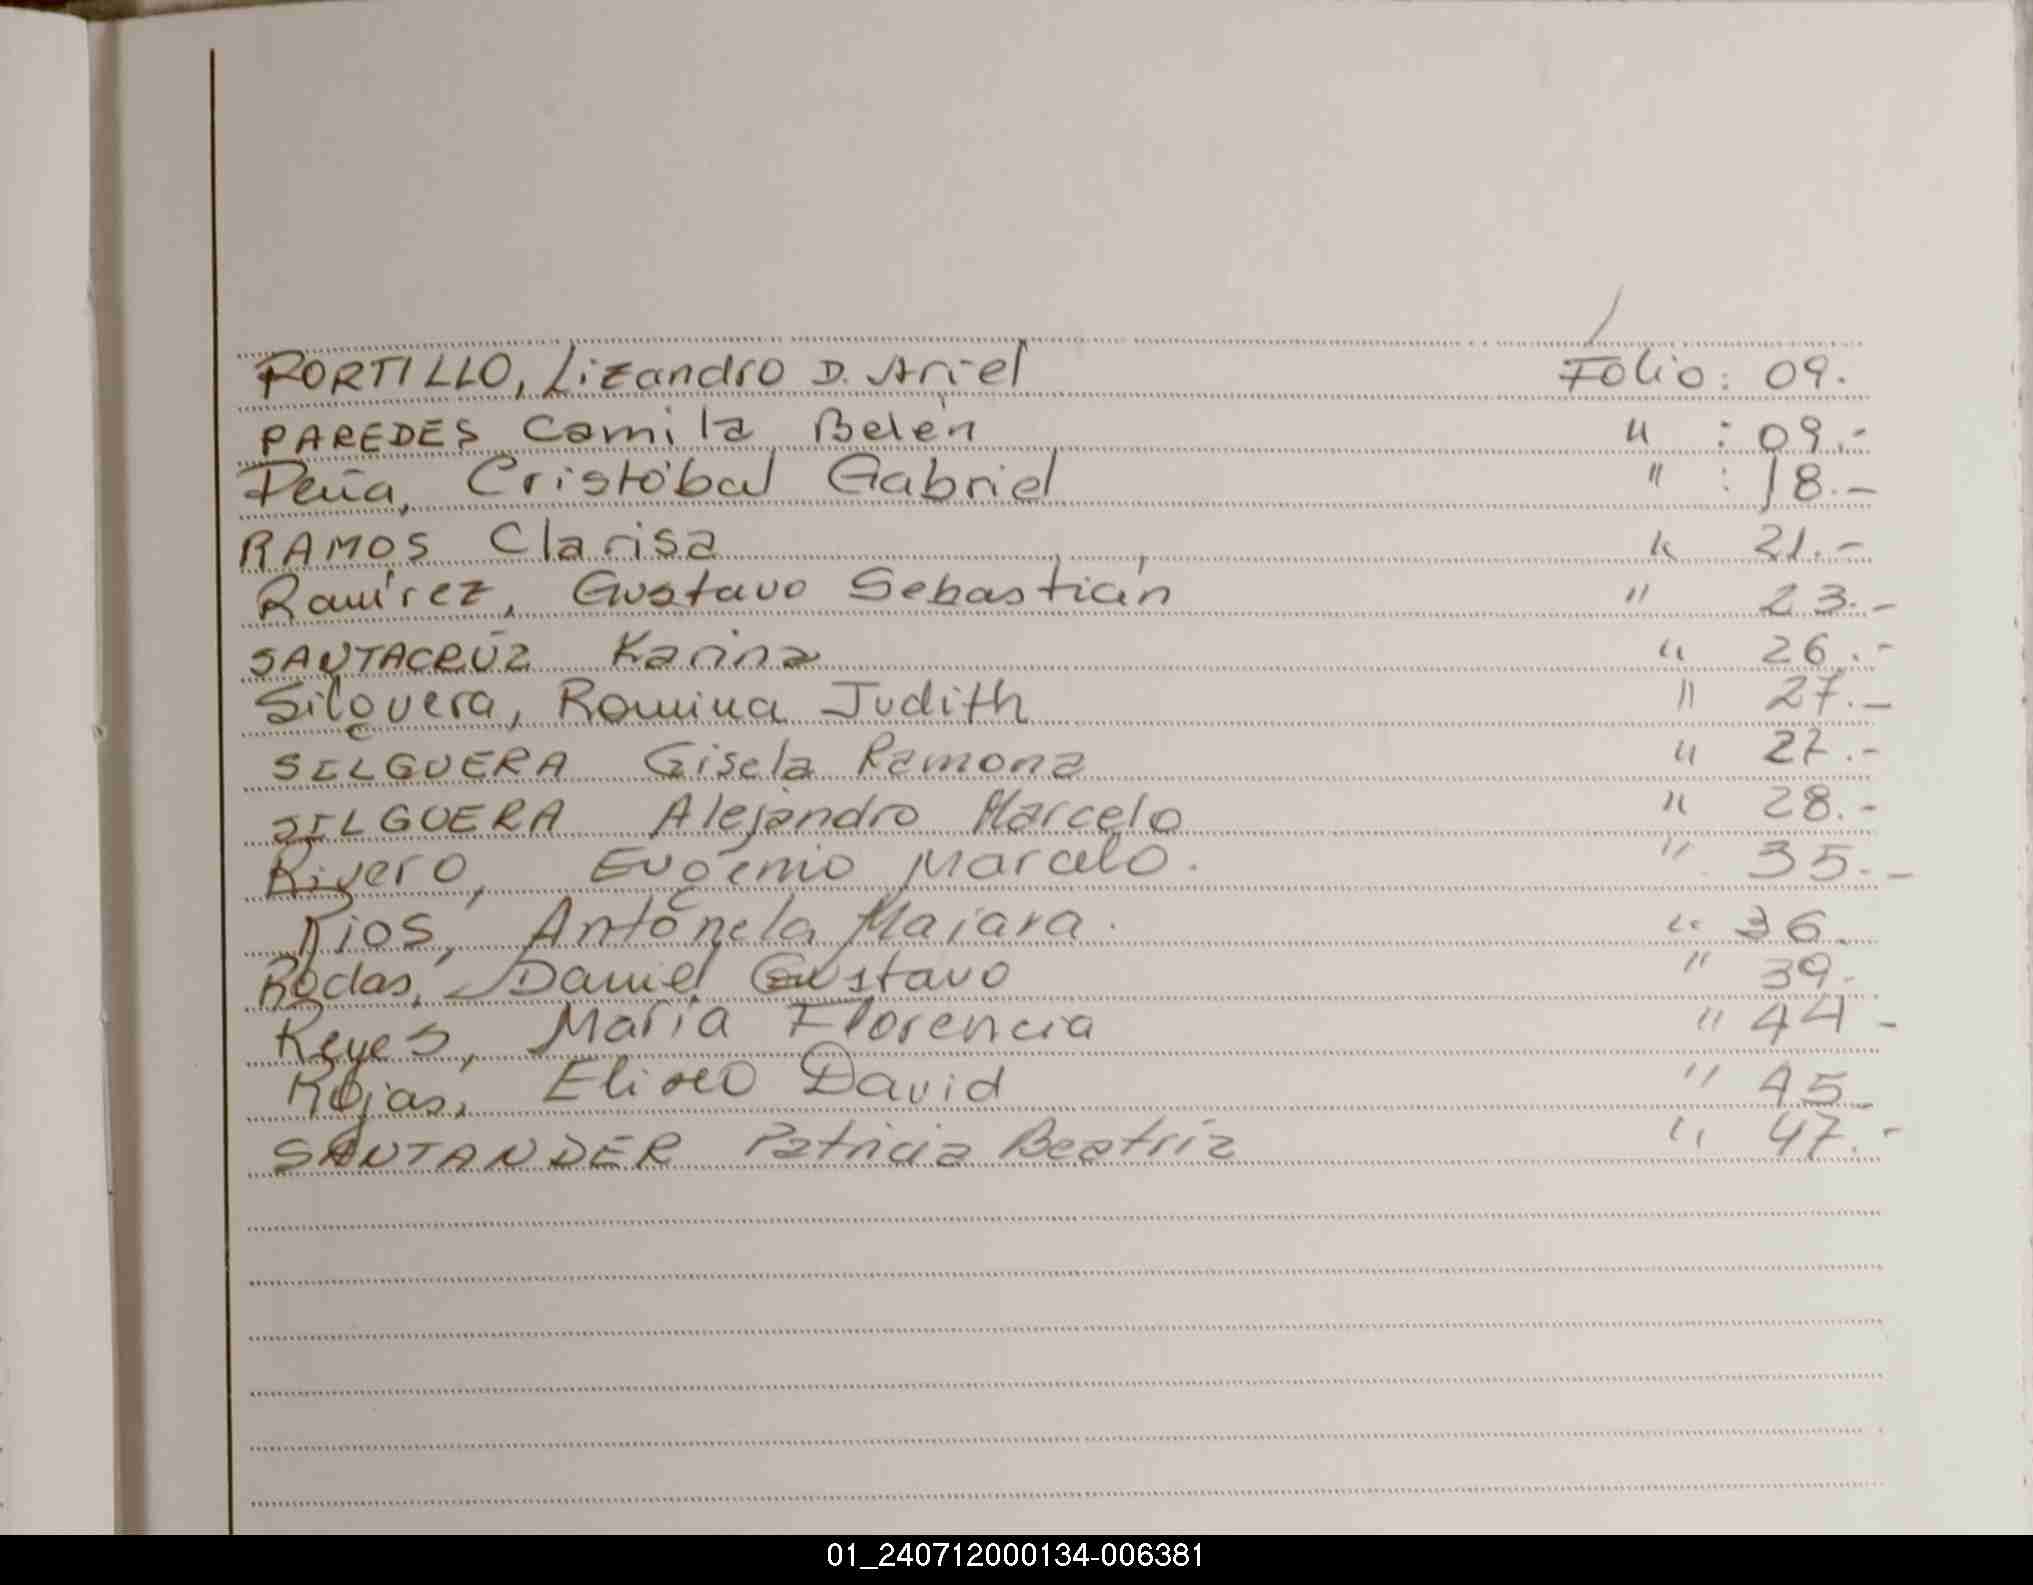 PORTILLO, Lizandro D. Ariel Folio: 09.
PAREDES Camila Belén " : 09.-
Peña, Cristóbal Gabriel " : 18.-
RAMOS Clarisa " 21.-
Ramírez, Gustavo Sebastián " 23.-
SANTACRUZ Karina " 26.-
Silguera, Romina Judith " 27.-
SILGUERA Gisela Ramona " 27.-
SILGUERA Alejandro Marcelo " 28.-
Rivero, Eugenio Marcelo. " 35.-
Rios, Antonela Maiara. " 36.
Rodas, Daniel Gustavo " 39.
Reyes, María Florencia " 44 -
Rojas, Eliseo David " 45_
SANTANDER Patricia Beatriz " 47.-
01_240712000134-006381